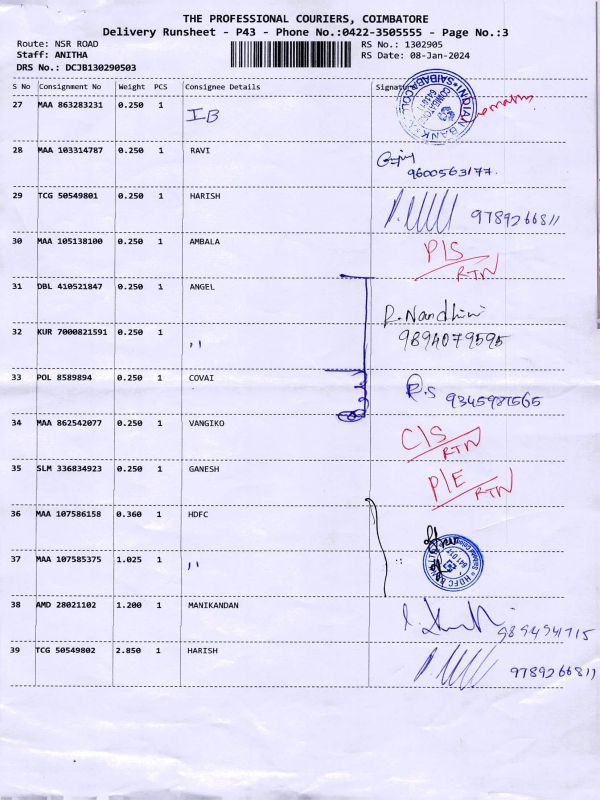 THE PROFESSIONAL COURIERS, COIMBATORE
Delivery Runsheet - P43 - Phone No.:0422-3505555 - Page No.:3
Route: NSR ROAD
Staff: ANITHA
DRS No.: DCJB130290503
RS No.: 1302905
RS Date: 08-Jan-2024
S No Consignment No Weight PCS Consignee Details Signature
27 MAA 863283231 0.250 1 IB
INDIAN BANK
SAIBABA COL
COIMBATORE
28 MAA 103314787 0.250 1 RAVI
9600563177.
29 TCG 50549801 0.250 1 HARISH 9789266811
30 MAA 105138100 0.250 1 AMBALA P/S RTN
31 DBL 410521847 0.250 1 ANGEL R. Nandhini
32 KUR 7000821591 0.250 1 ,, 9894079595
33 POL 8589894 0.250 1 COVAI R.S 9345987565
34 MAA 862542077 0.250 1 VANGIKO C/S RTN
35 SLM 336834923 0.250 1 GANESH P/E RTN
36 MAA 107586158 0.360 1 HDFC
37 MAA 107585375 1.025 1 ,,
HDFC BANK
38 AMD 28021102 1.200 1 MANIKANDAN 9894941715
39 TCG 50549802 2.850 1 HARISH 9789266811